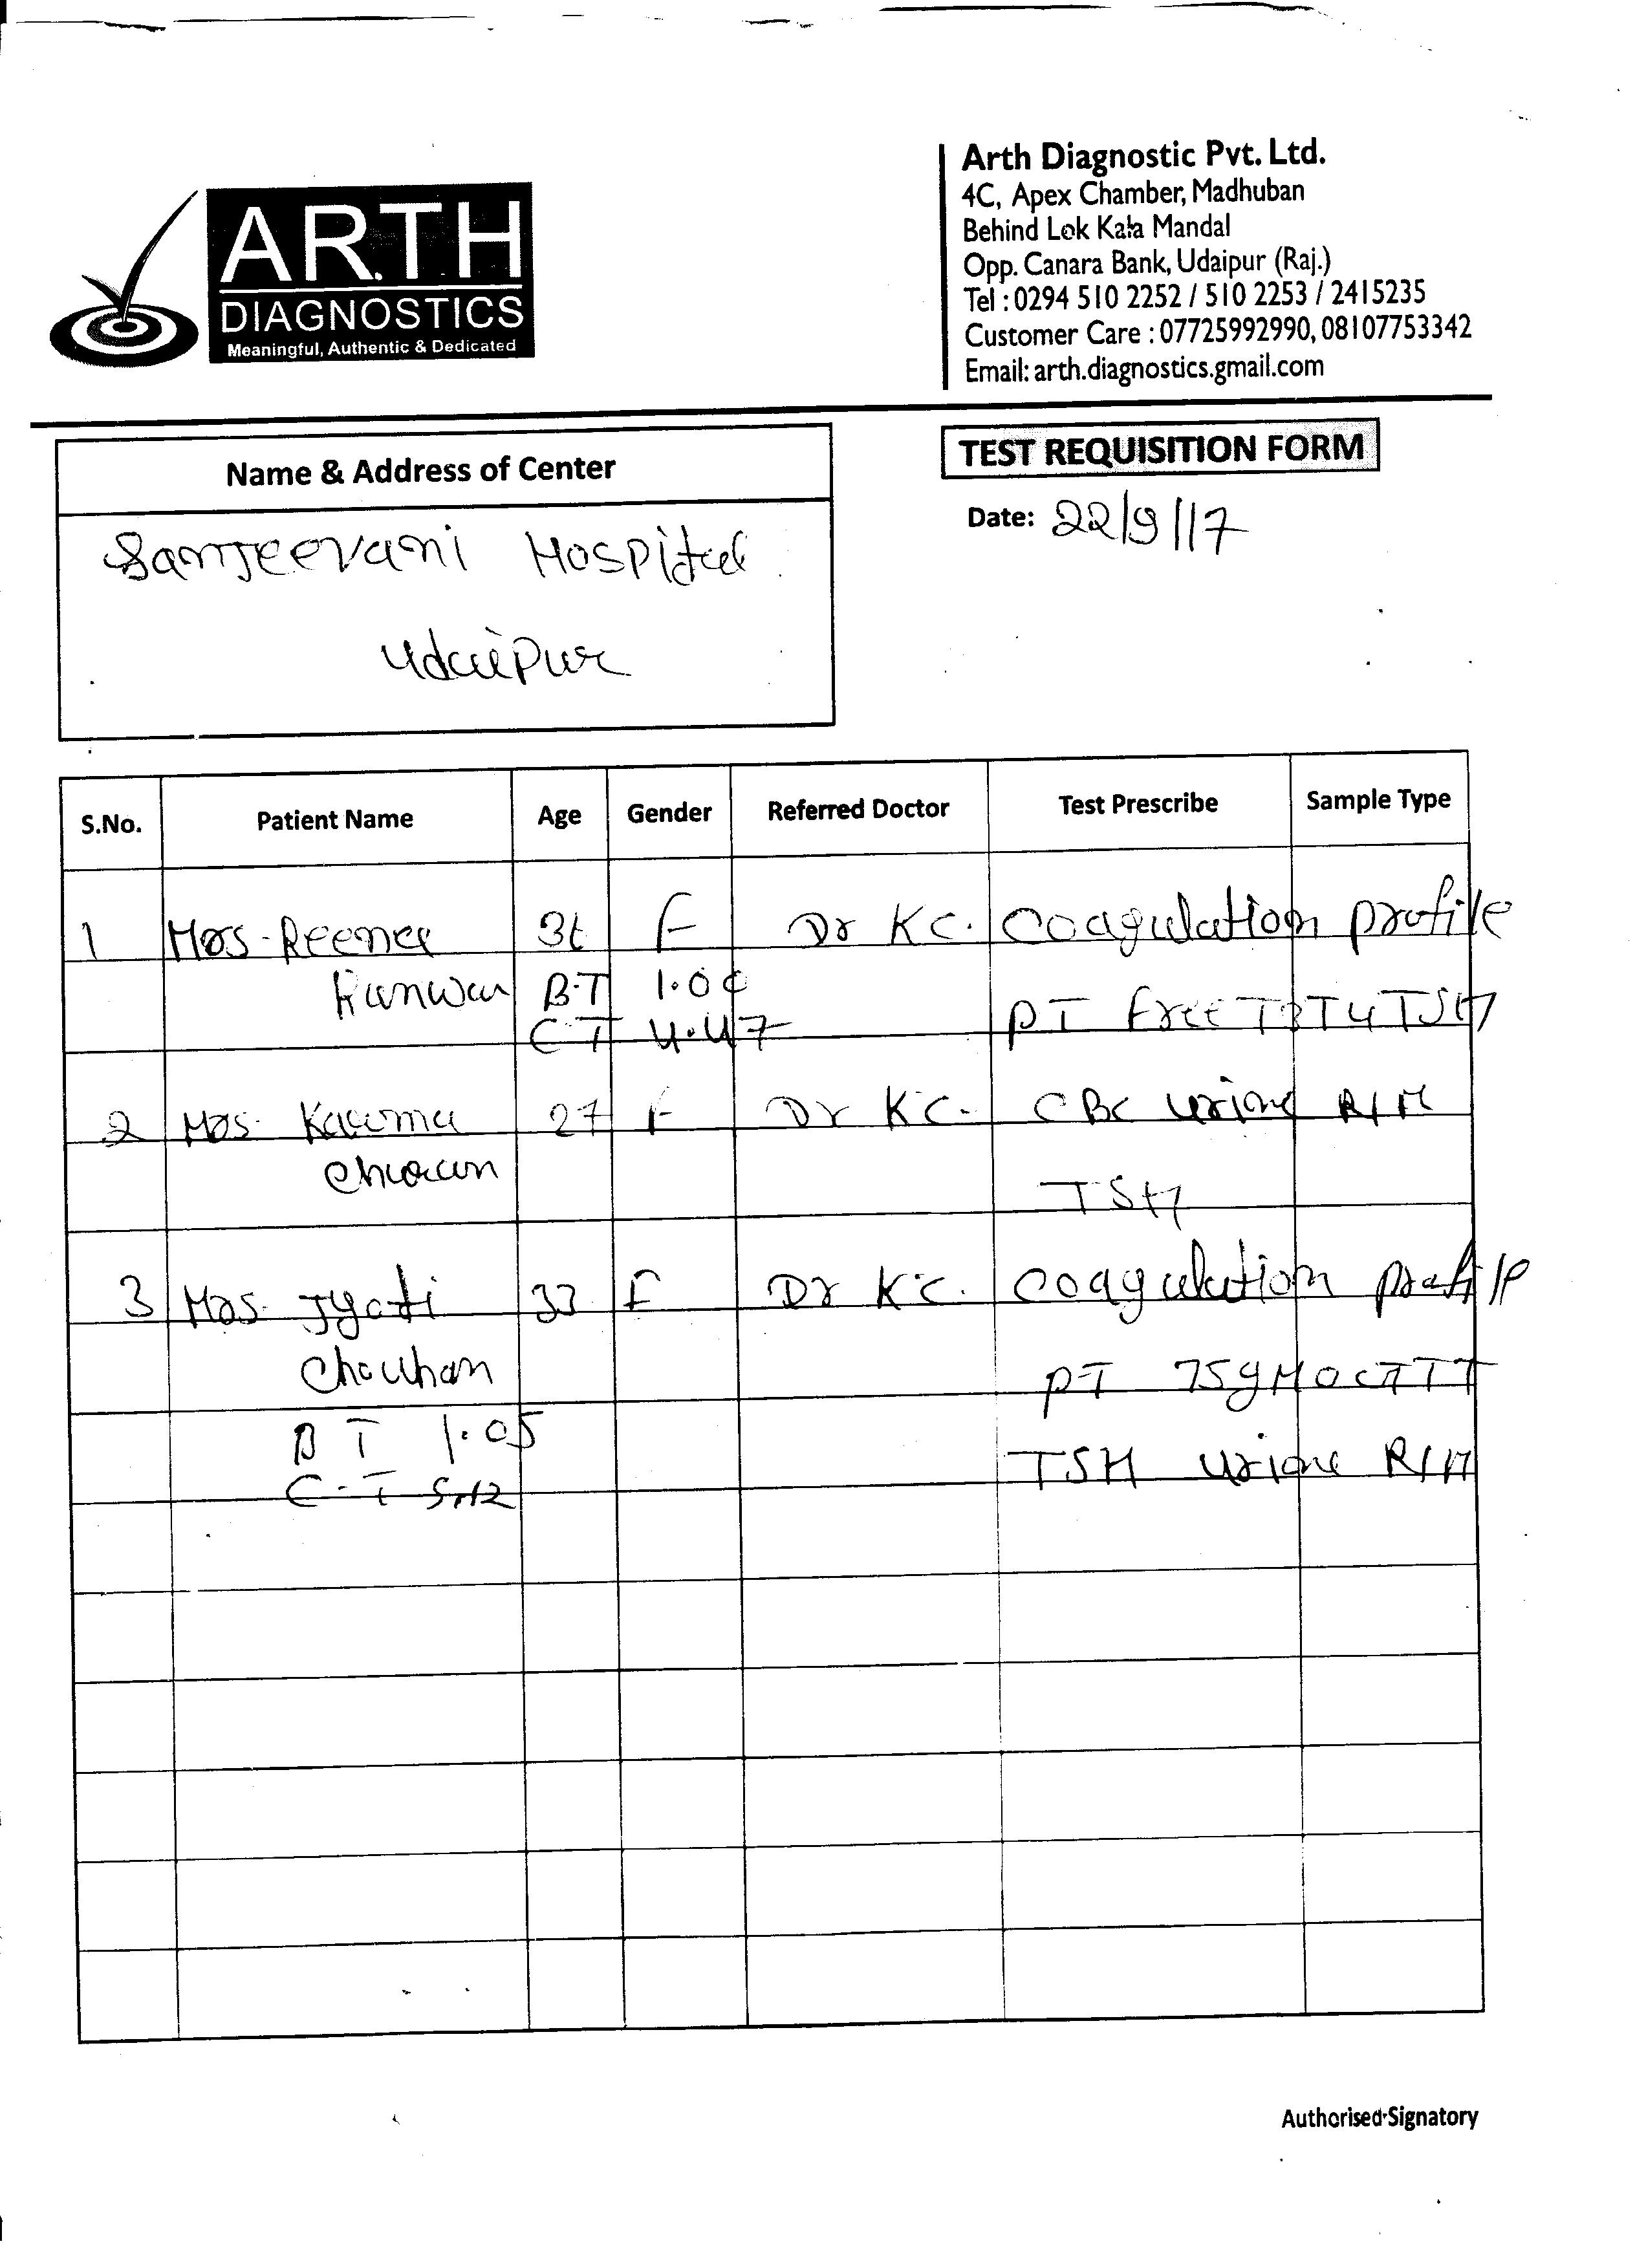 ARTH
DIAGNOSTICS
Meaningful, Authentic & Dedicated
Arth Diagnostic Pvt. Ltd.
4C, Apex Chamber, Madhuban
Behind Lok Kala Mandal
Opp. Canara Bank, Udaipur (Raj.)
Tel : 0294 510 2252 / 510 2253 / 2415235
Customer Care : 07725992990, 08107753342
Email: arth.diagnostics.gmail.com
Name & Address of Center
TEST REQUISITION FORM
Date: 22/9/17
Sanjeevani Hospital
Udaipur
S.No. Patient Name Age Gender Referred Doctor Test Prescribe Sample Type
1 Mrs. Reena F Dr KC. Coagulation profile
Kunwar B.T
C.T 4.47 PT Free T3 T4 TSH
2 Mrs. 27 F Dr KC. CBC Urine R/M
TSH
3 Mrs. Jyoti 33 F Dr KC. Coagulation profile
Chouhan PT 75g
B T 1.05
C.T TSH Urine R/M
Authorised Signatory